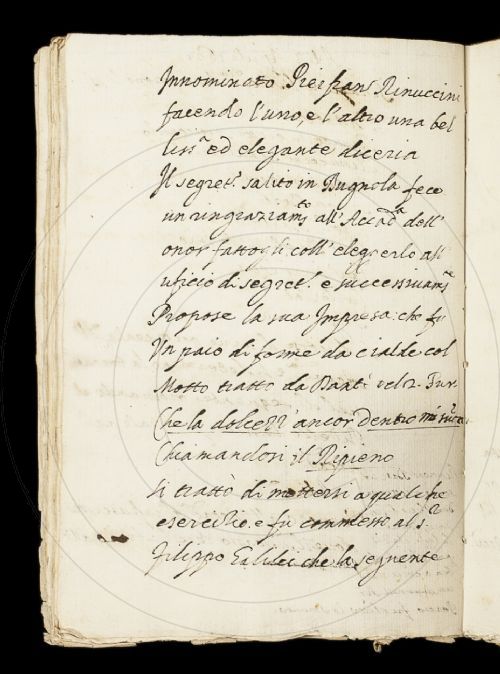 Innominato Pierfran.o Rinuccini
facendo l'uno, e l'altro una bel
liss.a ed elegante diceria
Il segret.o salito in Bugnola fece
un ringraziam.to all' Accad.a dell'
onor fattogli coll' eleggerlo all'
ufizio di segret.o e successivam.e
Propose la sua Impresa: che fu
Un paio di forme da cialde col
Motto tratto da Dant. nel 2. Pur.
Che la dolcezz' ancor dentro mi suona
Chiamandosi il Ripieno
Si trattò di mettersi a qualche
esercizio, e fu commesso al s.r
Filippo Galilei che la seguente